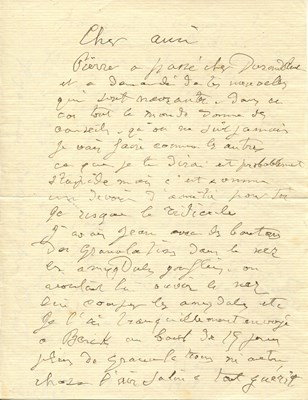 Cher ami
Pierre a passé chez Durand Ruel
et a demandé de tes nouvelles
qui sont navrantes. dans ce
cas tout le monde donne des
conseils, qu'on ne suit jamais
Je vais faire comme les autres
ce que je te dirai est probablement
stupide mais c'est comme
un devoir d'amitié pour toi
Je risque le ridicule
J'avais Jean avec des boutons
des granulations dans le nez
les amygdales gonflées. on
voulait lui brûler le nez
lui couper les amygdales etc
Je l'ai tranquillement envoyé
à Berck au bout de 15 jours
plus de granulations ni autre
chose l'air salin a tout guérit